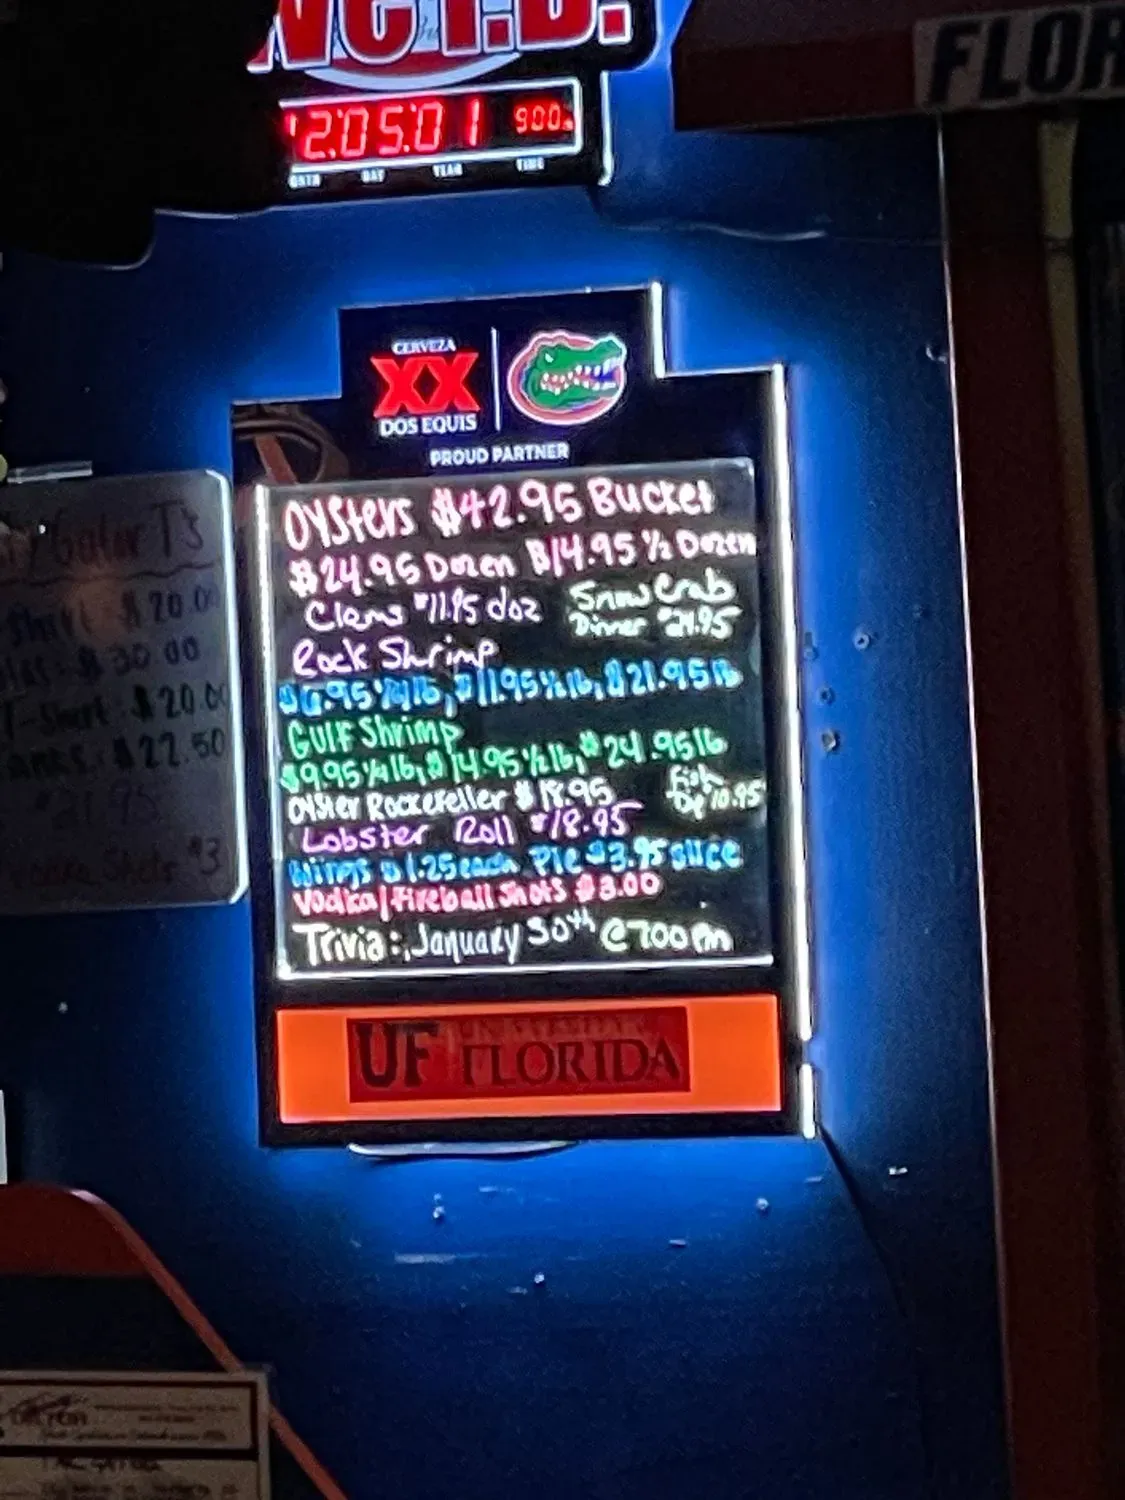 We I.D.
12:05:01 900
DAY YEAR TIME
FLOR
CERVEZA
XX
DOS EQUIS
PROUD PARTNER
Oysters $42.95 Bucket
$24.95 Dozen $14.95 ½ Dozen
Clams $11.95 doz
Snow Crab
Dinner $24.95
Rock Shrimp
$6.95 ¼ lb, $11.95 ½ lb, $21.95 lb
Gulf Shrimp
$9.95 ¼ lb, $14.95 ½ lb, $24.95 lb
Oyster Rockefeller $18.95
Fish
Dip 10.95
Lobster Roll $18.95
Wings $1.25 each Pie $3.95 slice
Vodka/Fireball Shots $3.00
Trivia: January 30th @ 7:00 pm
UF UNIVERSITY of
FLORIDA
Gator T's
Shirt $20.00
$30.00
T-Shirt: $20.00
$22.50
$21.95
Shots $3